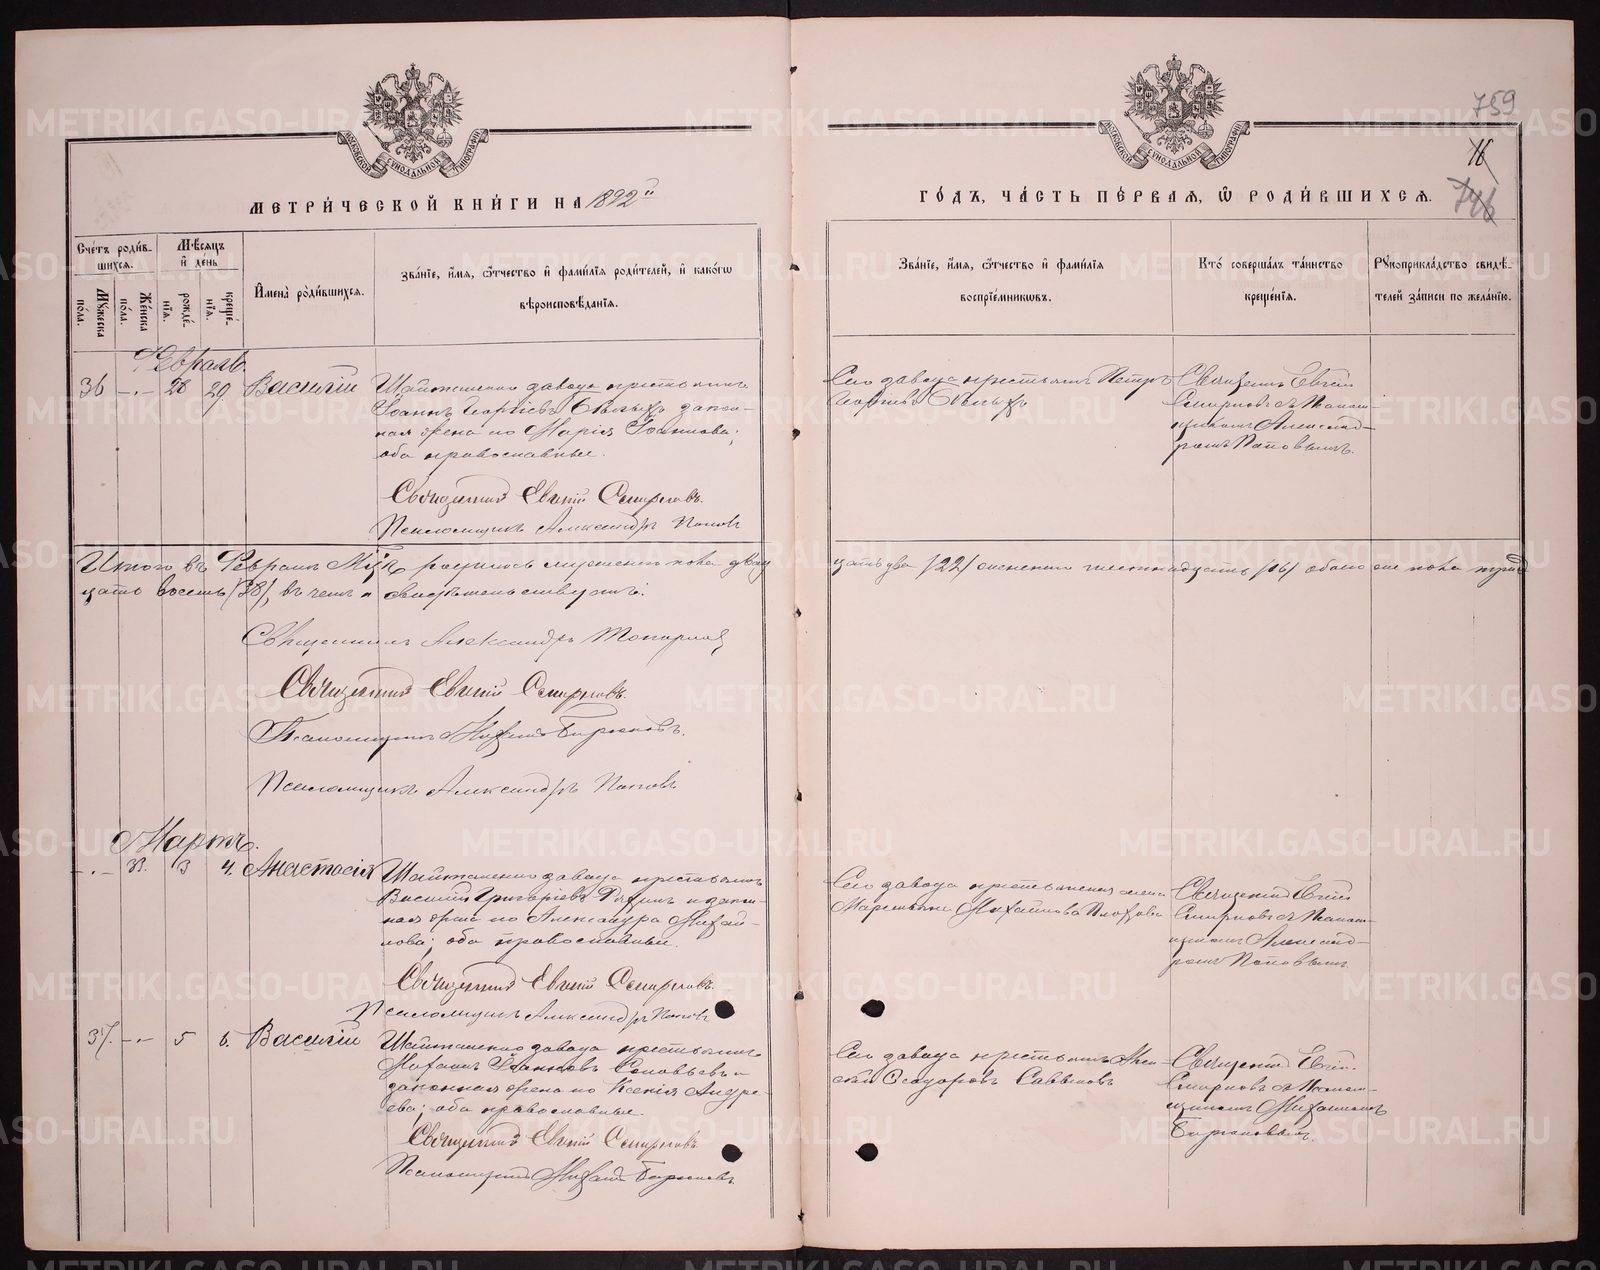 759
16
746
МЕТРИЧЕСКОЙ КНИГИ НА 1892й
ГОДЪ, ЧАСТЬ ПЕРВАЯ, Ѿ РОДИВШИХСЯ.
Счетъ родив-
шихся.
Мѣсяцъ
и день
Мужеска
пола.
Женска
пола.
рожде-
нія.
креще-
нія.
Имена родившихся.
Званіе, имя, ѿтчество и фамилія родителей, и какогѡ
вѣроисповѣданія.
Званіе, имя, ѿтчество и фамилія
воспріемникѡвъ.
Кто совершалъ таинство
крещенія.
Рукоприкладство свидѣ-
телей записи по желанію.
Февраль.
36 -„- 28 29 Василій
Шайтанскаго завода крестьянинъ
Іоаннъ Георгіевъ Бѣлыхъ закон-
ная жена его Марія Іоаннова;
оба православные.
Священникъ Евгеній Смирновъ.
Псаломщикъ Александръ Поповъ
Сего завода крестьянинъ Петръ
Георгіевъ Бѣлыхъ
Священникъ Евгеній
Смирновъ съ Псалом-
щикомъ Александ-
ромъ Поповымъ.
Итого въ Февралѣ Мцѣ родилось мужеска пола двад
цать два /22/ женска шестнадцать /16/ обоего пола трид
цать восемь /38/, въ чемъ и свидѣтельствуютъ:
Священникъ Александръ Топорковъ
Священникъ Евгеній Смирновъ.
Псаломщикъ Михаилъ Бирюковъ.
Псаломщикъ Александръ Поповъ
Мартъ.
-„- 33. 3 4. Анастасія
Шайтанскаго завода крестьянинъ
Василій Григоріевъ и закон-
ная жена его Александра Михай-
лова; оба православные.
Священникъ Евгеній Смирновъ.
Псаломщикъ Александръ Поповъ
Сего завода крестьянская жена
Михайлова
Священникъ Евгеній
Смирновъ съ Псалом-
щикомъ Александ-
ромъ Поповымъ
37. -„- 5 6. Василій
Шайтанскаго завода крестьянинъ
Михаилъ Іоанновъ Соловьевъ и
законная жена его Ксенія Андре-
ева; оба православные.
Священникъ Евгеній Смирновъ
Псаломщикъ Михаилъ Бирюковъ.
Сего завода крестьянинъ Алек-
сѣй Ѳеодоровъ Саввиновъ
Священникъ Евгеній
Смирновъ съ Псалом-
щикомъ Михаиломъ
Бирюковымъ.
METRIKI.GASO-URAL.RU